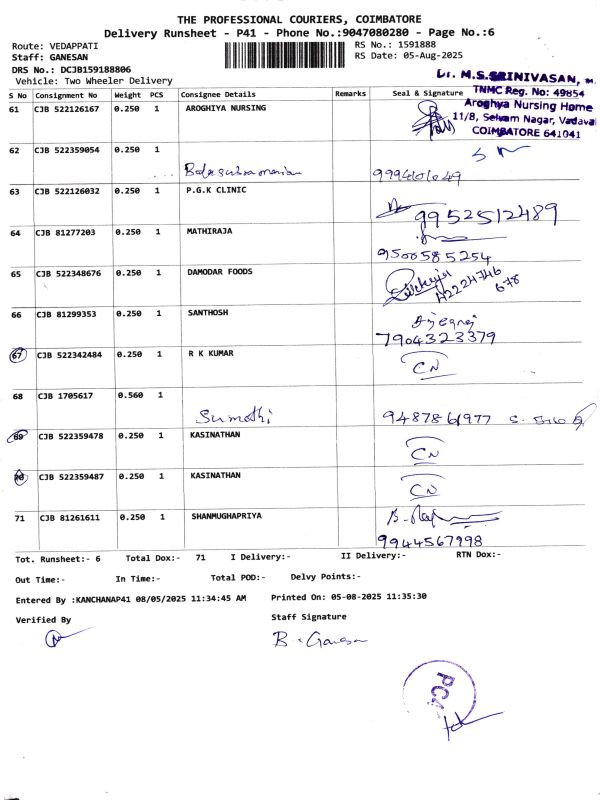 THE PROFESSIONAL COURIERS, COIMBATORE
Delivery Runsheet - P41 - Phone No.:9047080280 - Page No.:6
Route: VEDAPPATI
RS No.: 1591888
Staff: GANESAN
RS Date: 05-Aug-2025
DRS No.: DCJB159188806
Vehicle: Two Wheeler Delivery
Dr. M.S.SRINIVASAN,
TNMC Reg. No: 49854
Aroghya Nursing Home
11/8, Selvam Nagar, Vadavai
COIMBATORE 641041
S No Consignment No Weight PCS Consignee Details Remarks Seal & Signature
61 CJB 522126167 0.250 1 AROGHIYA NURSING
62 CJB 522359054 0.250 1
Balasubramanian
63 CJB 522126032 0.250 1 P.G.K CLINIC
9952512489
64 CJB 81277203 0.250 1 MATHIRAJA
9500585254
65 CJB 522348676 0.250 1 DAMODAR FOODS
66 CJB 81299353 0.250 1 SANTHOSH
7904323379
67 CJB 522342484 0.250 1 R K KUMAR
CN
68 CJB 1705617 0.560 1
Sumathi 9487861977
69 CJB 522359478 0.250 1 KASINATHAN
CN
70 CJB 522359487 0.250 1 KASINATHAN
CN
71 CJB 81261611 0.250 1 SHANMUGHAPRIYA
9944567998
Tot. Runsheet:- 6 Total Dox:- 71 I Delivery:- II Delivery:- RTN Dox:-
Out Time:- In Time:- Total POD:- Delvy Points:-
Entered By :KANCHANAP41 08/05/2025 11:34:45 AM Printed On: 05-08-2025 11:35:30
Verified By
Staff Signature
B. Ganesan